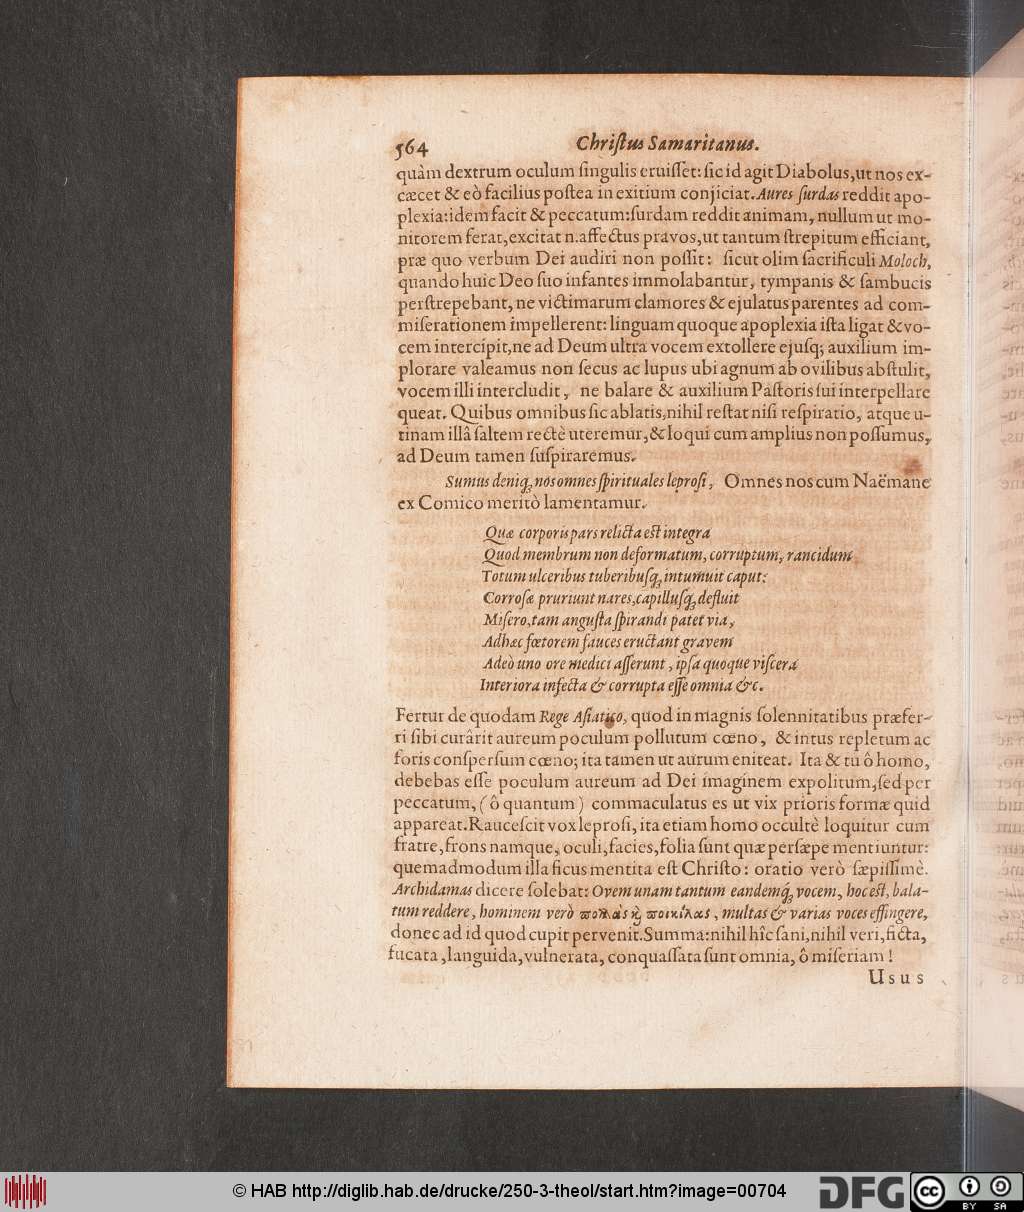 564 Chriſtus Samaritanus.
quàm dextrum oculum ſingulis eruiſſet: ſic id agit Diabolus, ut nos ex-
cæcet & eò facilius poſtea in exitium conjiciat. Aures ſurdas reddit apo-
plexia: idem facit & peccatum: ſurdam reddit animam, nullum ut mo-
nitorem ferat, excitat n. affectus pravos, ut tantum ſtrepitum efficiant,
præ quo verbum Dei audiri non poſſit: ſicut olim ſacrificuli Moloch,
quando huic Deo ſuo infantes immolabantur, tympanis & ſambucis
perſtrepebant, ne victimarum clamores & ejulatus parentes ad com-
miſerationem impellerent: linguam quoque apoplexia iſta ligat & vo-
cem intercipit, ne ad Deum ultra vocem extollere ejuſq; auxilium im-
plorare valeamus non ſecus ac lupus ubi agnum ab ovilibus abſtulit,
vocem illi intercludit, ne balare & auxilium Paſtoris ſui interpellare
queat. Quibus omnibus ſic ablatis, nihil reſtat niſi reſpiratio, atque u-
tinam illâ ſaltem rectè uteremur, & loqui cum amplius non poſſumus,
ad Deum tamen ſuſpiraremus.
Sumus deniq; nos omnes ſpirituales leproſi, Omnes nos cum Naëmane
ex Comico meritò lamentamur.
Quæ corporis pars relicta eſt integra
Quod membrum non deformatum, corruptum, rancidum
Totum ulceribus tuberibuſq; intumuit caput:
Corroſæ pruriunt nares, capilluſq; defluit
Miſero, tam anguſta ſpirandi patet via,
Adhæc fœtorem fauces eructant gravem
Adeò uno ore medici aſſerunt, ipſa quoque viſcera
Interiora infecta & corrupta eſſe omnia &c.
Fertur de quodam Rege Aſiatico, quod in magnis ſolennitatibus præfer-
ri ſibi curârit aureum poculum pollutum cœno, & intus repletum ac
foris conſperſum cœno; ita tamen ut aurum eniteat. Ita & tu ô homo,
debebas eſſe poculum aureum ad Dei imaginem expolitum, ſed per
peccatum, (ô quantum) commaculatus es ut vix prioris formæ quid
appareat. Rauceſcit vox leproſi, ita etiam homo occultè loquitur cum
fratre, frons namque, oculi, facies, folia ſunt quæ perſæpe mentiuntur:
quemadmodum illa ficus mentita eſt Chriſto: oratio verò ſæpiſſimè.
Archidamas dicere ſolebat: Ovem unam tantum eandemq́; vocem, hoc eſt, bala-
tum reddere, hominem verò πολλὰς κ̀ ποικίλας, multas & varias voces effingere,
donec ad id quod cupit pervenit. Summa: nihil hîc ſani, nihil veri, ficta,
fucata, languida, vulnerata, conquaſſata ſunt omnia, ô miſeriam!
Usus
© HAB http://diglib.hab.de/drucke/250-3-theol/start.htm?image=00704
DFG
cc BY SA